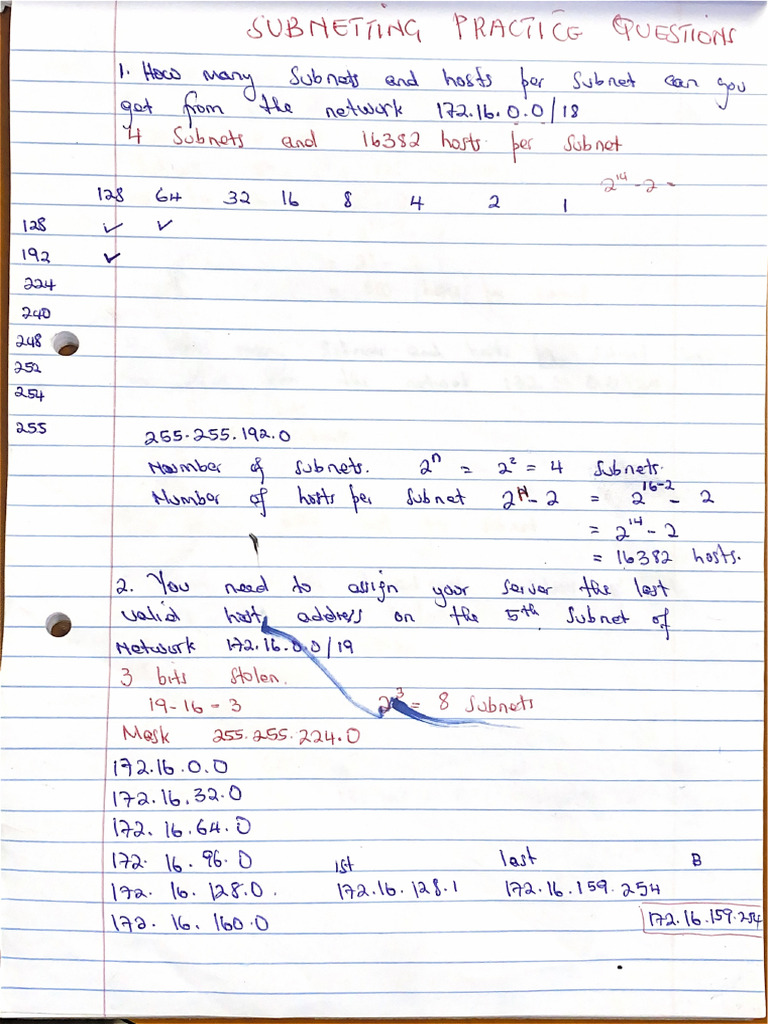 SUBNETTING PRACTICE QUESTIONS
1. How many subnets and hosts per subnet can you
get from the network 172.16.0.0/18
4 Subnets and 16382 hosts per subnet
2^14 - 2 =
128 64 32 16 8 4 2 1
128 ✓ ✓
192 ✓
224
240
248
252
254
255
255.255.192.0
Number of subnets. 2^n = 2^2 = 4 subnets.
Number of hosts per subnet 2^14 - 2 = 2^16-2 - 2
= 2^14 - 2
= 16382 hosts.
2. You need to assign your server the last
valid host address on the 5th subnet of
Network 172.16.0.0/19
3 bits stolen.
19-16 = 3 2^3 = 8 subnets
Mask 255.255.224.0
172.16.0.0
172.16.32.0
172.16.64.0
172.16.96.0 1st last B
172.16.128.0. 172.16.128.1 172.16.159.254
172.16.160.0 172.16.159.254